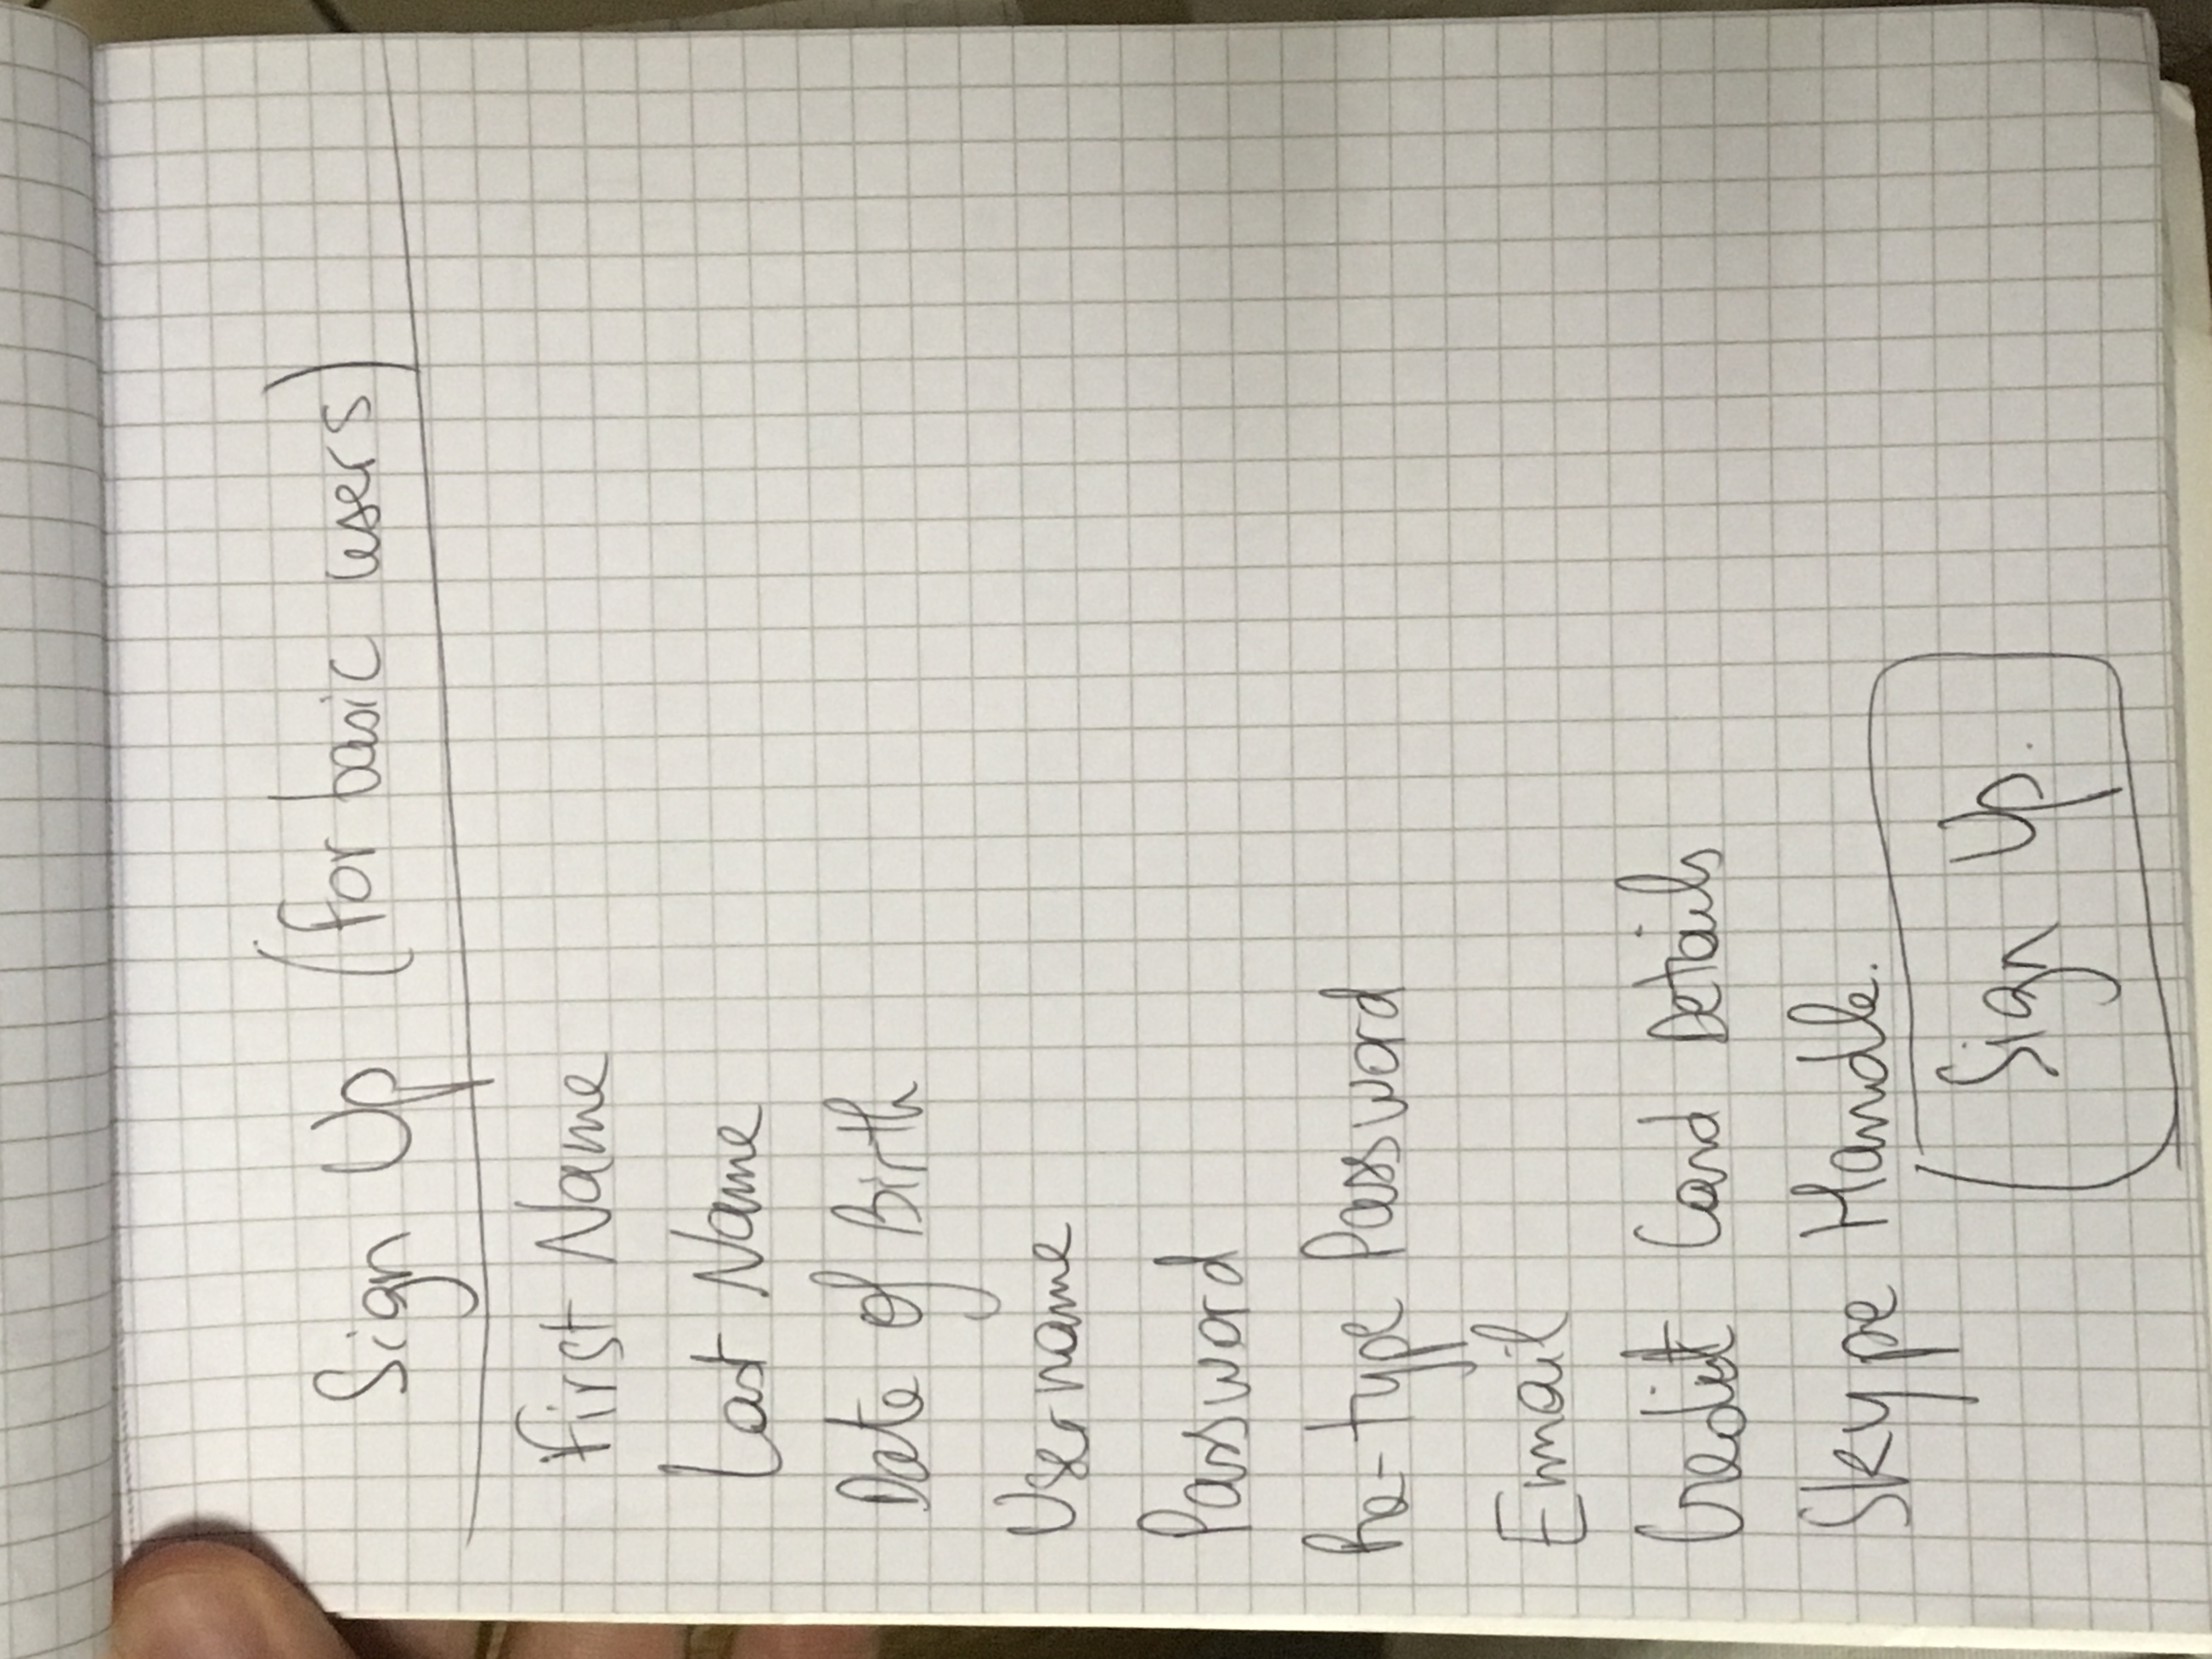 Sign Up (for basic users)
First Name
Last Name
Date of Birth
Username
Password
Re-type Password
Email
Credit Card Details
Skype Handle.
Sign Up.